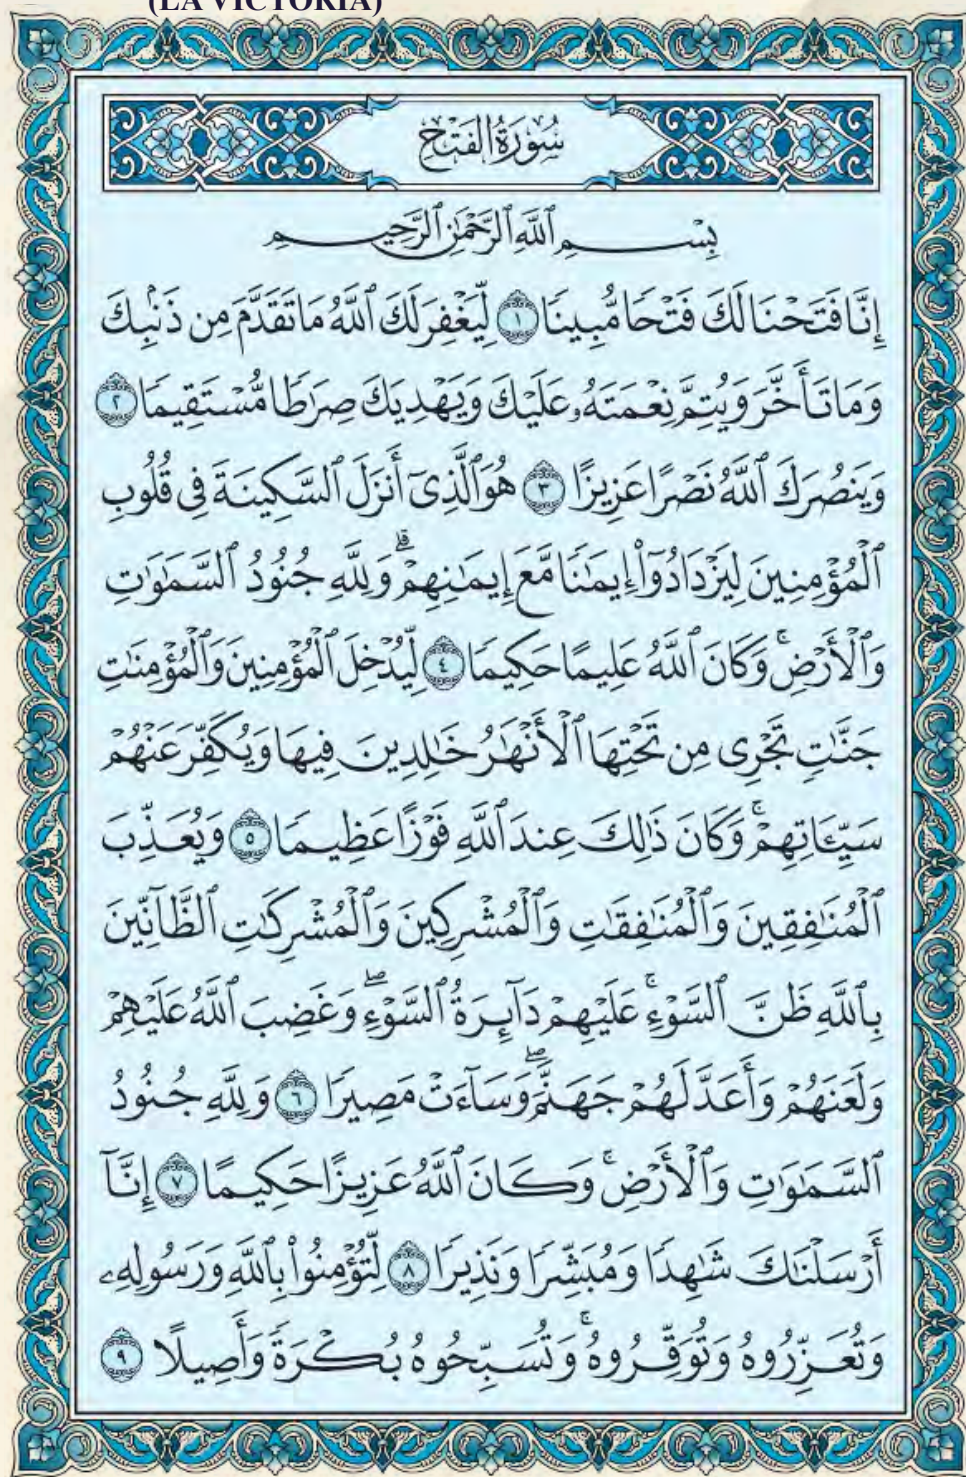 (LA VICTORIA)
سُورَةُ الفَتۡحِ
بِسۡمِ ٱللَّهِ ٱلرَّحۡمَٰنِ ٱلرَّحِيمِ
إِنَّا فَتَحۡنَا لَكَ فَتۡحٗا مُّبِينٗا ١ لِّيَغۡفِرَ لَكَ ٱللَّهُ مَا تَقَدَّمَ مِن ذَنۢبِكَ
وَمَا تَأَخَّرَ وَيُتِمَّ نِعۡمَتَهُۥ عَلَيۡكَ وَيَهۡدِيَكَ صِرَٰطٗا مُّسۡتَقِيمٗا ٢
وَيَنصُرَكَ ٱللَّهُ نَصۡرًا عَزِيزًا ٣ هُوَ ٱلَّذِيٓ أَنزَلَ ٱلسَّكِينَةَ فِي قُلُوبِ
ٱلۡمُؤۡمِنِينَ لِيَزۡدَادُوٓاْ إِيمَٰنٗا مَّعَ إِيمَٰنِهِمۡۗ وَلِلَّهِ جُنُودُ ٱلسَّمَٰوَٰتِ
وَٱلۡأَرۡضِۚ وَكَانَ ٱللَّهُ عَلِيمًا حَكِيمٗا ٤ لِّيُدۡخِلَ ٱلۡمُؤۡمِنِينَ وَٱلۡمُؤۡمِنَٰتِ
جَنَّٰتٖ تَجۡرِي مِن تَحۡتِهَا ٱلۡأَنۡهَٰرُ خَٰلِدِينَ فِيهَا وَيُكَفِّرَ عَنۡهُمۡ
سَيِّـَٔاتِهِمۡۚ وَكَانَ ذَٰلِكَ عِندَ ٱللَّهِ فَوۡزًا عَظِيمٗا ٥ وَيُعَذِّبَ
ٱلۡمُنَٰفِقِينَ وَٱلۡمُنَٰفِقَٰتِ وَٱلۡمُشۡرِكِينَ وَٱلۡمُشۡرِكَٰتِ ٱلظَّآنِّينَ
بِٱللَّهِ ظَنَّ ٱلسَّوۡءِۚ عَلَيۡهِمۡ دَآئِرَةُ ٱلسَّوۡءِۖ وَغَضِبَ ٱللَّهُ عَلَيۡهِمۡ
وَلَعَنَهُمۡ وَأَعَدَّ لَهُمۡ جَهَنَّمَۖ وَسَآءَتۡ مَصِيرٗا ٦ وَلِلَّهِ جُنُودُ
ٱلسَّمَٰوَٰتِ وَٱلۡأَرۡضِۚ وَكَانَ ٱللَّهُ عَزِيزًا حَكِيمًا ٧ إِنَّآ
أَرۡسَلۡنَٰكَ شَٰهِدٗا وَمُبَشِّرٗا وَنَذِيرٗا ٨ لِّتُؤۡمِنُواْ بِٱللَّهِ وَرَسُولِهِۦ
وَتُعَزِّرُوهُ وَتُوَقِّرُوهُۚ وَتُسَبِّحُوهُ بُكۡرَةٗ وَأَصِيلًا ٩